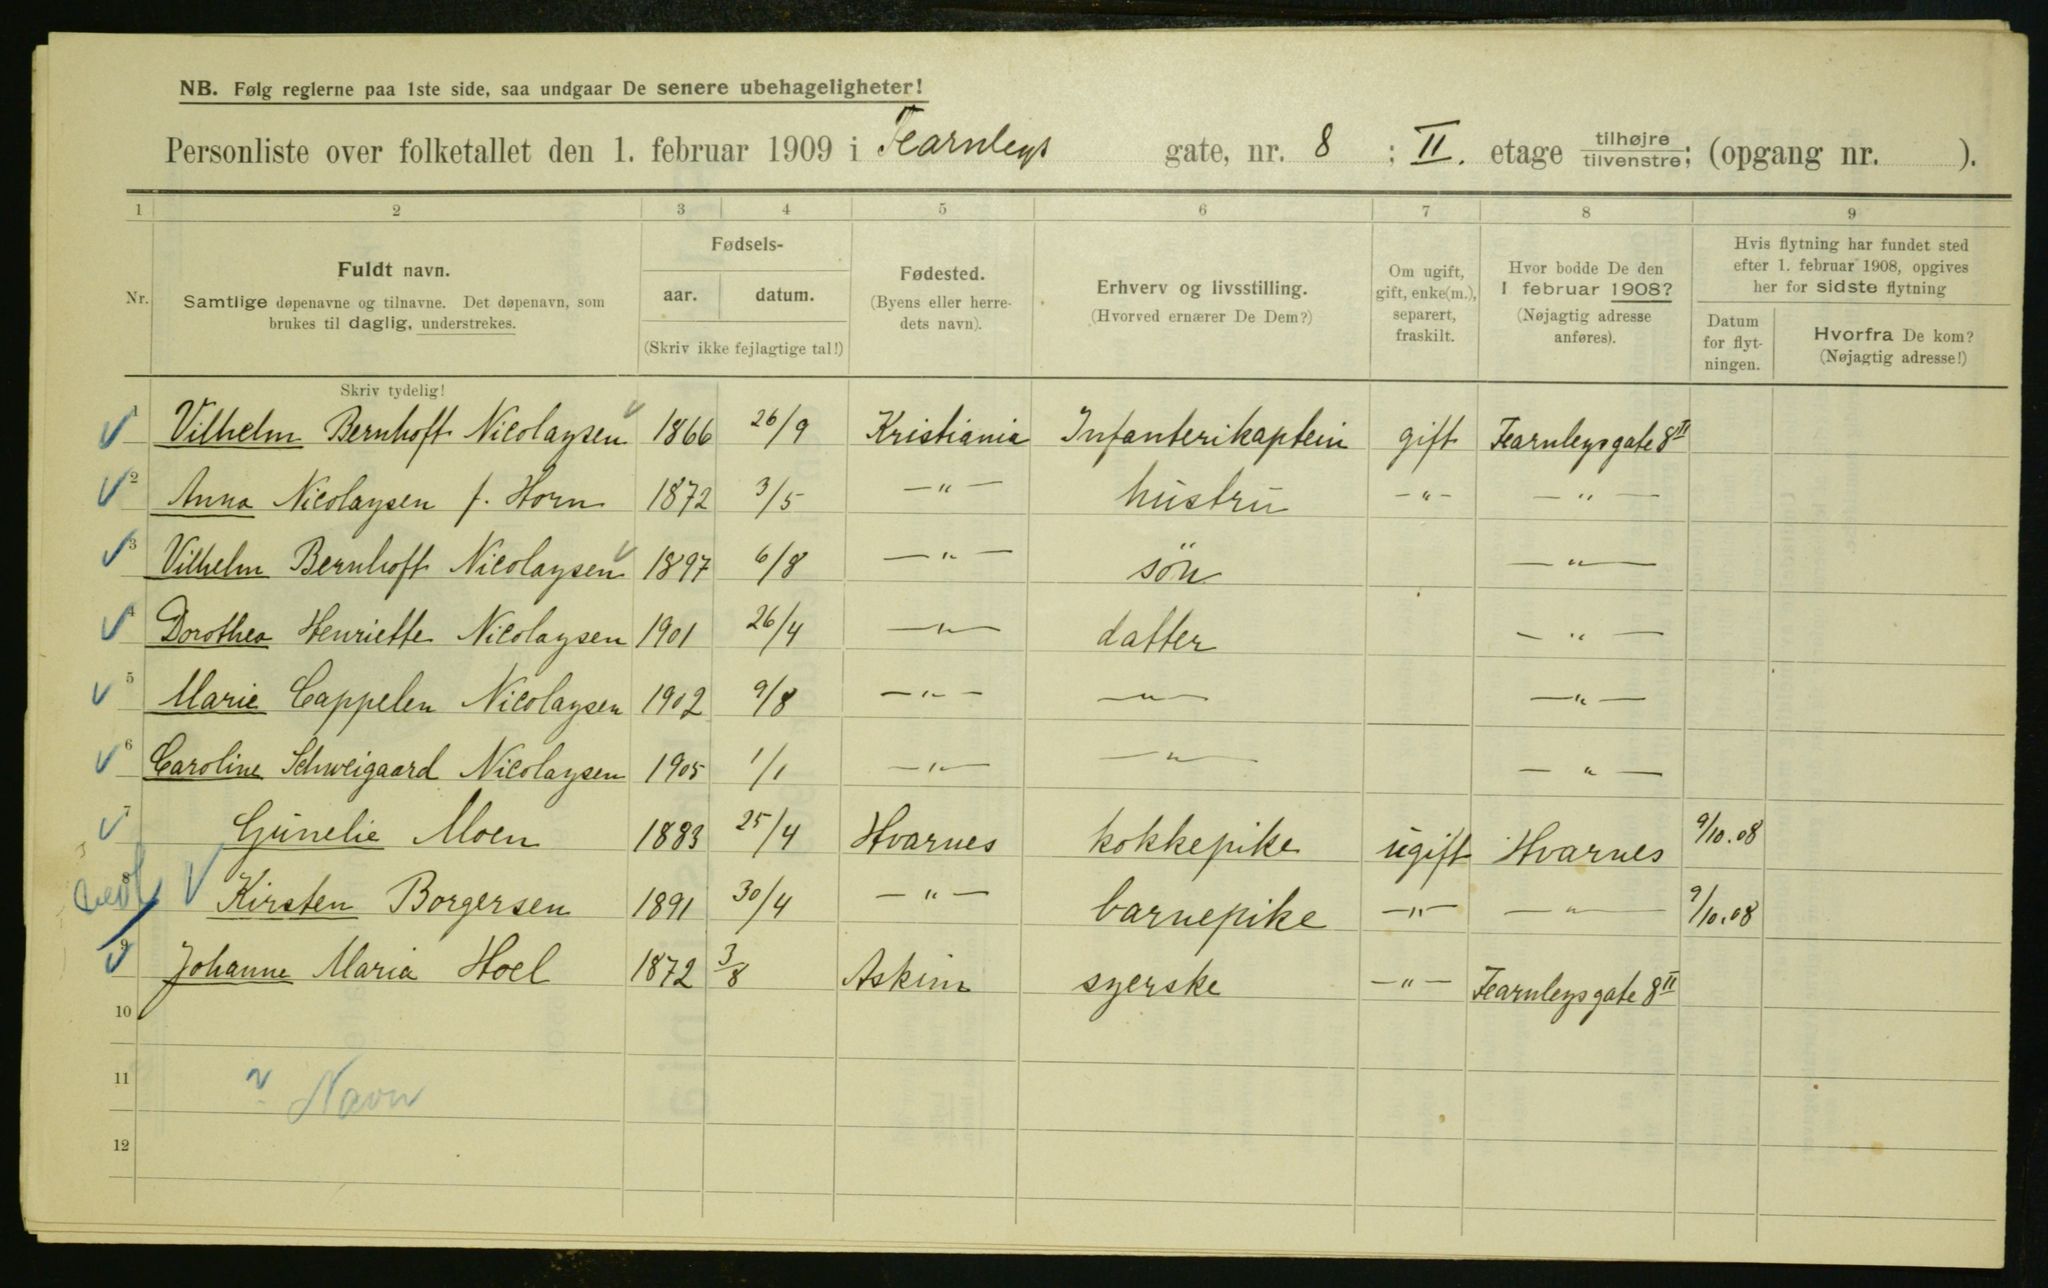 NB. Følg reglerne paa 1ste side, saa undgaar De senere ubehageligheter!
Personliste over folketallet den 1. februar 1909 i Fearnleys gate, nr. 8 ; II. etage tilhøjre/tilvenstre; (opgang nr. ).
1 2 3 4 5 6 7 8 9
Nr.
Fuldt navn.
Samtlige døpenavne og tilnavne. Det døpenavn, som
brukes til daglig, understrekes.
Fødsels-
aar. datum.
(Skriv ikke fejlagtige tal!)
Fødested.
(Byens eller herre-
dets navn).
Erhverv og livsstilling.
(Hvorved ernærer De Dem?)
Om ugift,
gift, enke(m.),
separert,
fraskilt.
Hvor bodde De den
1 februar 1908?
(Nøjagtig adresse
anføres).
Hvis flytning har fundet sted
efter 1. februar 1908, opgives
her for sidste flytning
Datum
for flyt-
ningen.
Hvorfra De kom?
(Nøjagtig adresse!)
Skriv tydelig!
1 Vilhelm Bernhoft Nicolaysen 1866 26/9 Kristiania Infanterikaptein gift Fearnleysgate 8 II
2 Anna Nicolaysen f. Horn 1872 3/5 —"— hustru —"— —"—
3 Vilhelm Bernhoft Nicolaysen 1897 6/8 —"— sön —"—
4 Dorothea Henriette Nicolaysen 1901 26/4 —"— datter —"—
5 Marie Cappelen Nicolaysen 1902 9/8 —"— —"— —"—
6 Caroline Schweigaard Nicolaysen 1905 1/1 —"— —"— —"—
7 Gunelie Moen 1883 25/4 Hvarnes kokkepike ugift Hvarnes 9/10.08
8 Kirsten Borgersen 1891 30/4 —"— barnepike —"— —"— 9/10.08
9 Johanne Maria Hoel 1872 3/8 Askim syerske —"— Fearnleysgate 8 II
10
11
Navn
12